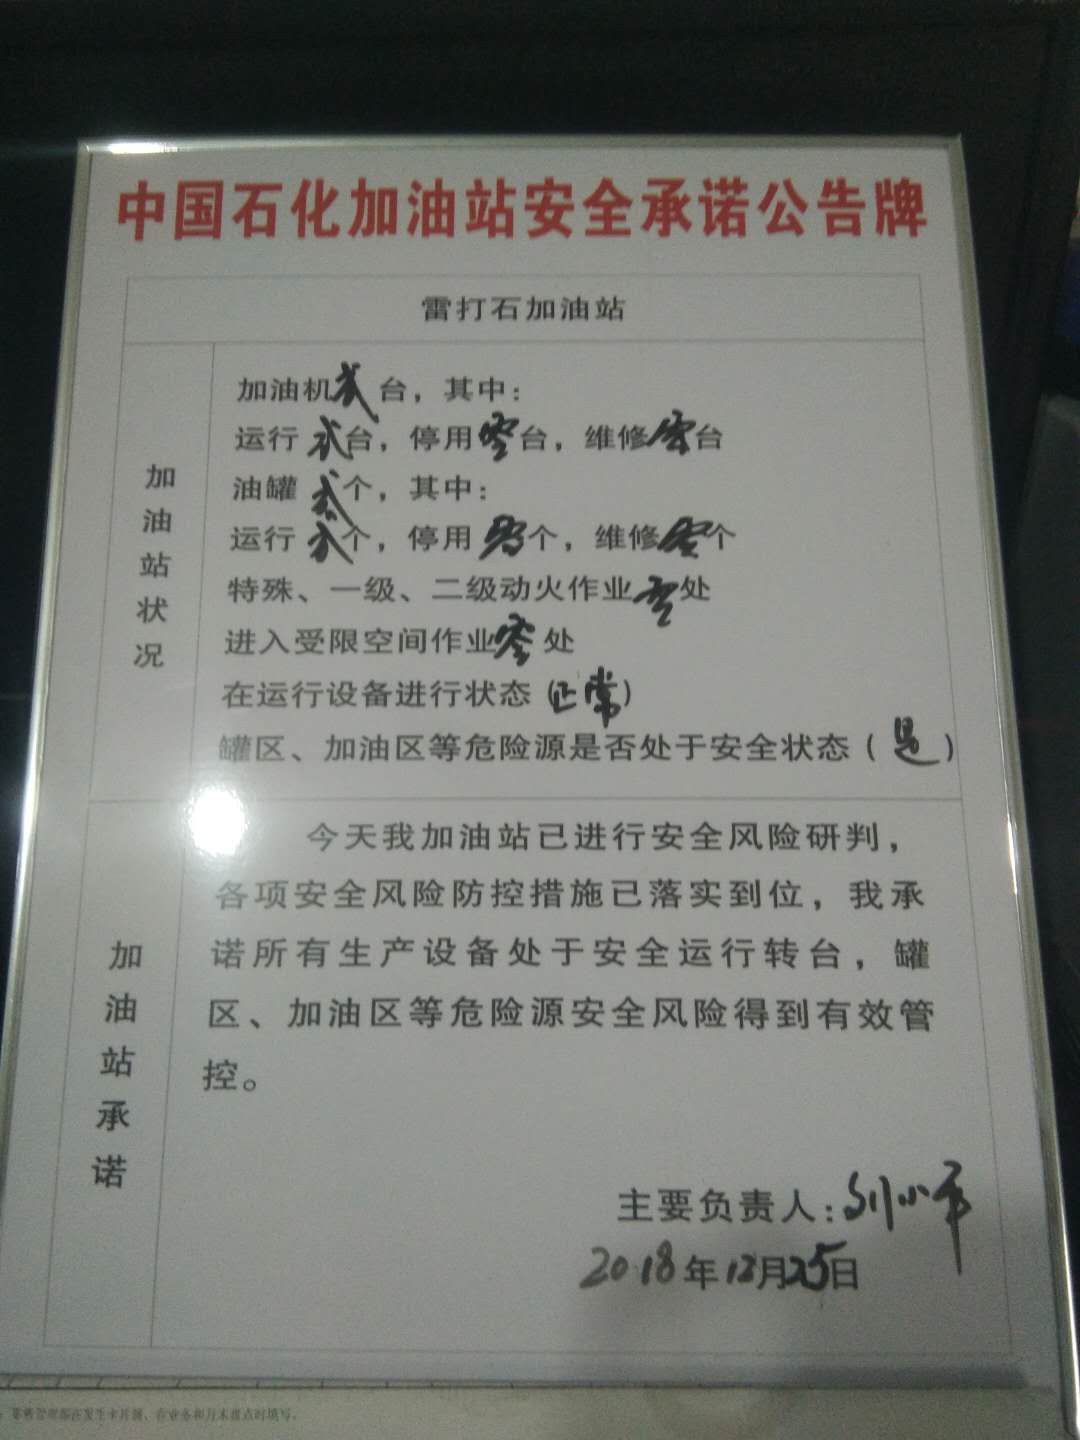 中国石化加油站安全承诺公告牌
雷打石加油站
加油站状况
加油机贰台，其中：
运行贰台，停用零台，维修零台
油罐贰个，其中：
运行贰个，停用零个，维修零个
特殊、一级、二级动火作业零处
进入受限空间作业零处
在运行设备进行状态（正常）
罐区、加油区等危险源是否处于安全状态（是）
加油站承诺
今天我加油站已进行安全风险研判，
各项安全风险防控措施已落实到位，我承
诺所有生产设备处于安全运行转台，罐
区、加油区等危险源安全风险得到有效管
控。
主要负责人：刘小平
2018年12月25日